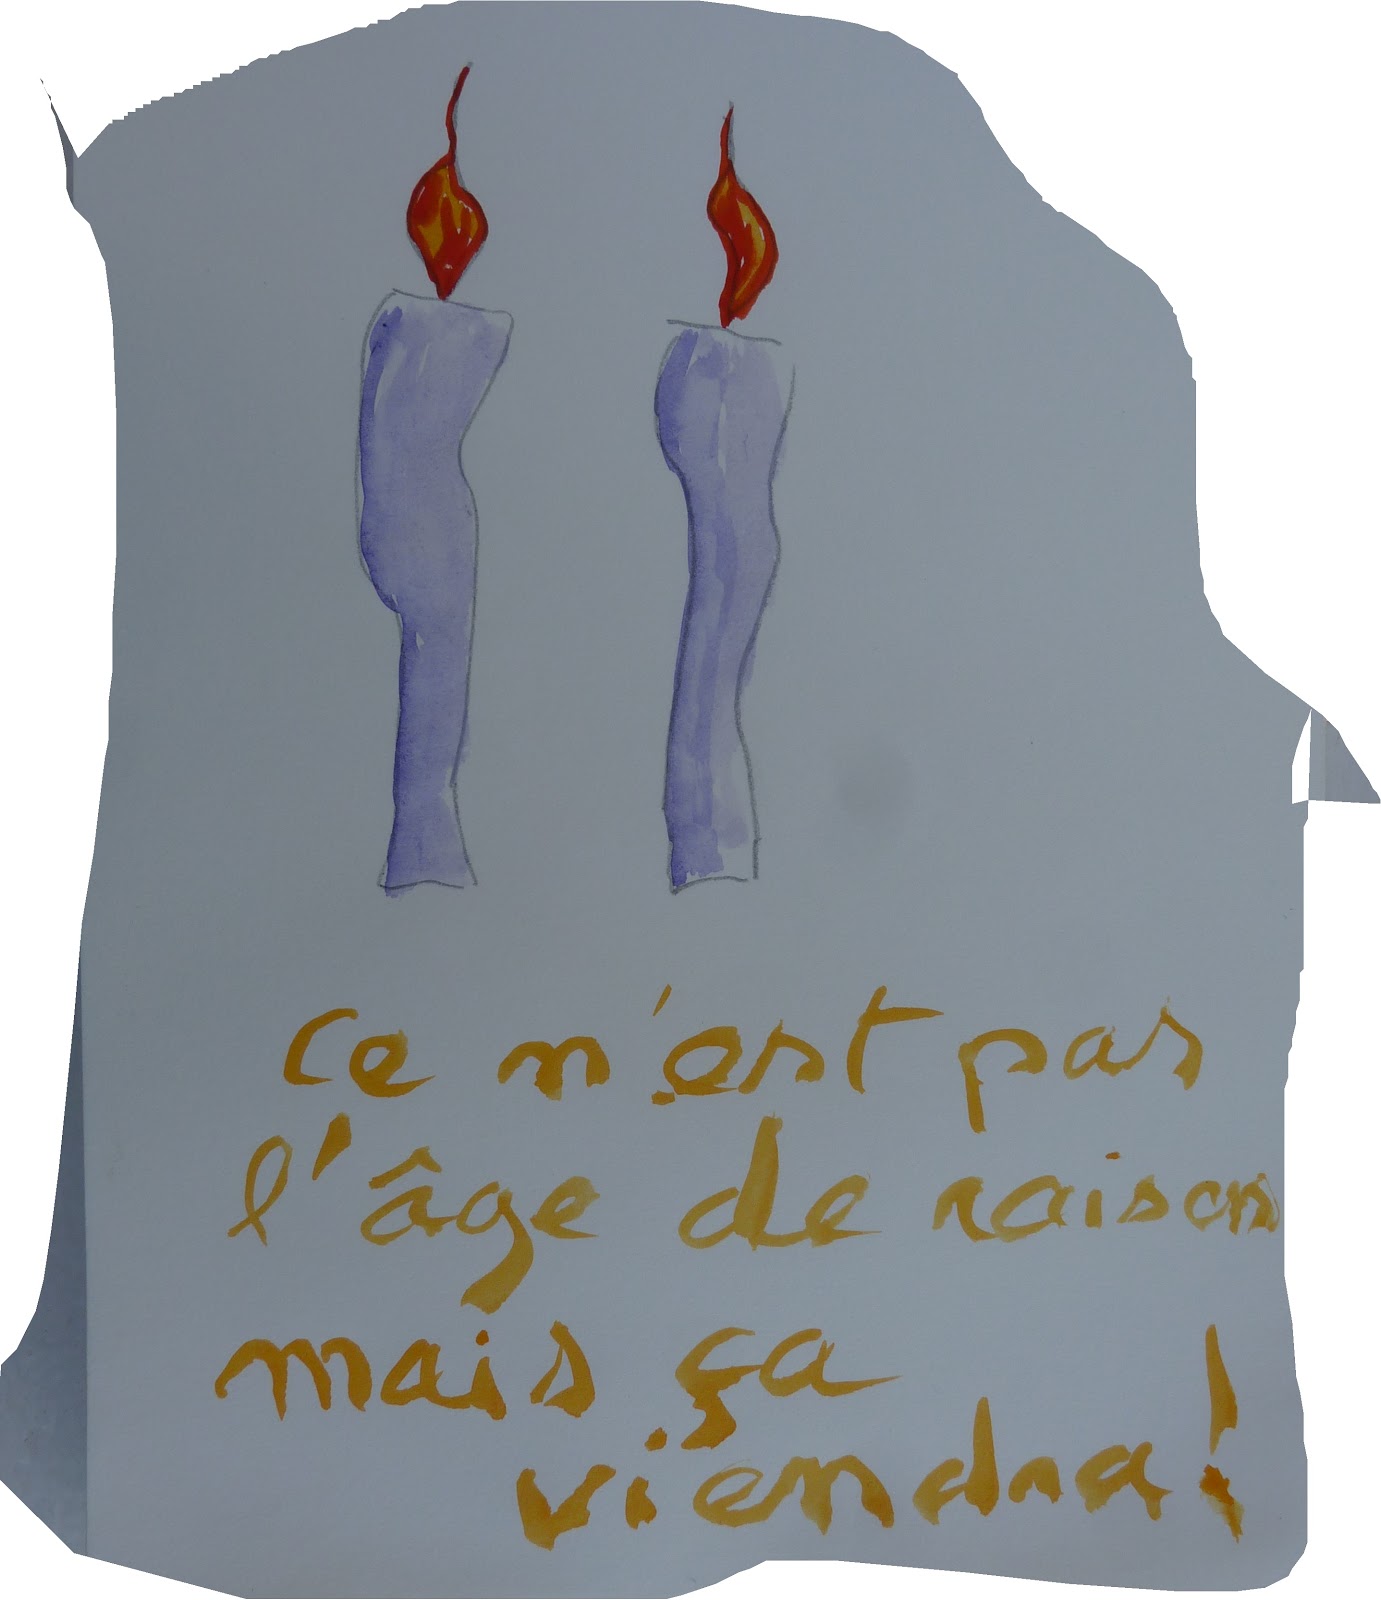 Ce n'est pas
l'âge de raison
mais ça
viendra !